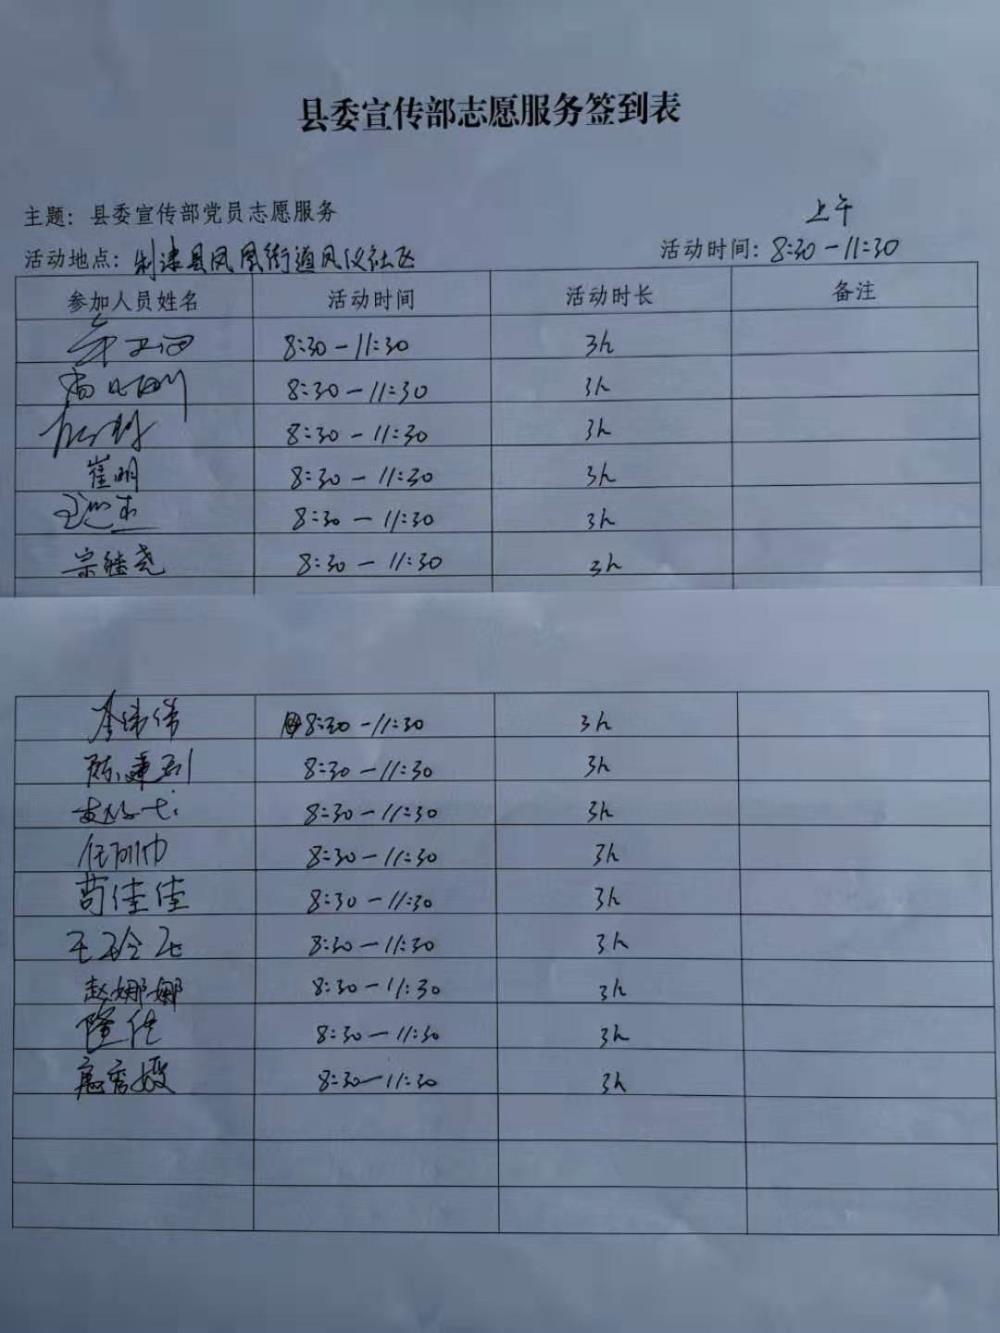 县委宣传部志愿服务签到表
主题：县委宣传部党员志愿服务
上午
活动地点：利津县凤凰街道凤仪社区
活动时间：8:30-11:30
参加人员姓名 活动时间 活动时长 备注
8:30-11:30 3h
8:30-11:30 3h
8:30-11:30 3h
崔明 8:30-11:30 3h
8:30-11:30 3h
宗继尧 8:30-11:30 3h
李伟伟 8:30-11:30 3h
8:30-11:30 3h
8:30-11:30 3h
任帅帅 8:30-11:30 3h
苟佳佳 8:30-11:30 3h
8:30-11:30 3h
赵娜娜 8:30-11:30 3h
隆佳 8:30-11:30 3h
8:30-11:30 3h